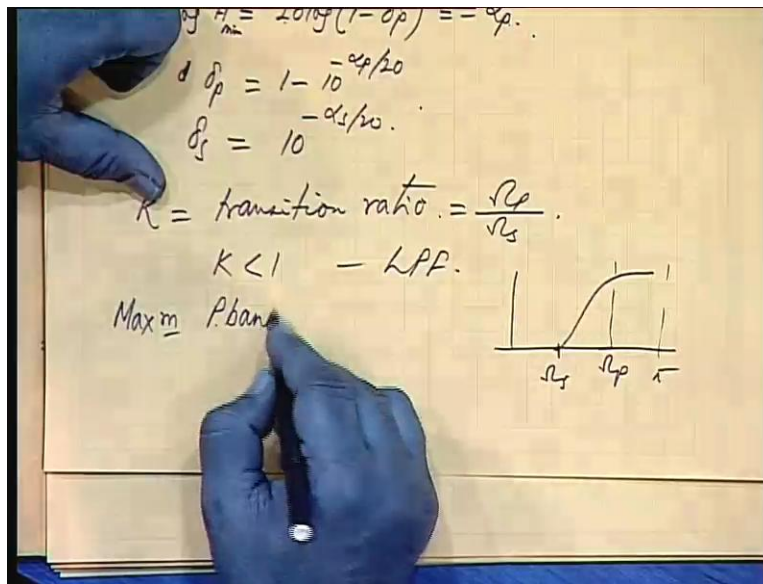 log A_min = 20log(1-δp) = -αp.
d δp = 1 - 10^-αp/20
δs = 10^-αs/20.
K = transition ratio. = Ωp/Ωs.
K < 1 - LPF.
Maxm P.ban
Ωs Ωp π